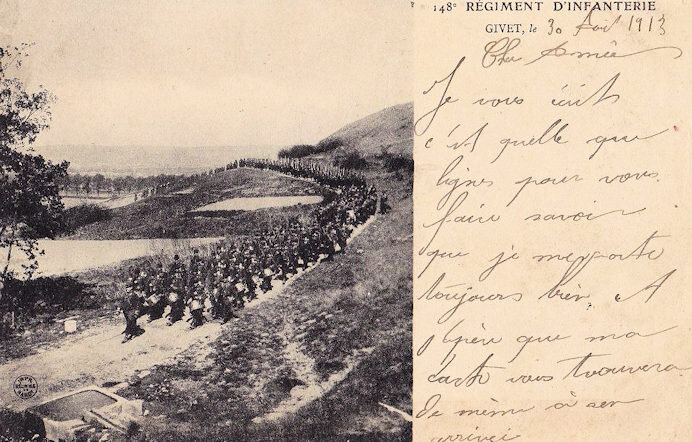 148e RÉGIMENT D'INFANTERIE
GIVET, le 30 Aout 1913
Cher Amie
Je vous écrit
c'est quelle que
lignes pour vous
faire savoir
que je me porte
toujours bien. A
que ma
carte vous trouvera
De même à son
arrivei